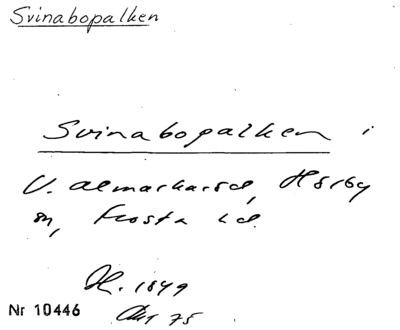 Svinabopalken
Svinabopalken i
V. Almarkarød, Hörby
sn, Frosta hd.
H. 1849
Akt 75
Nr 10446